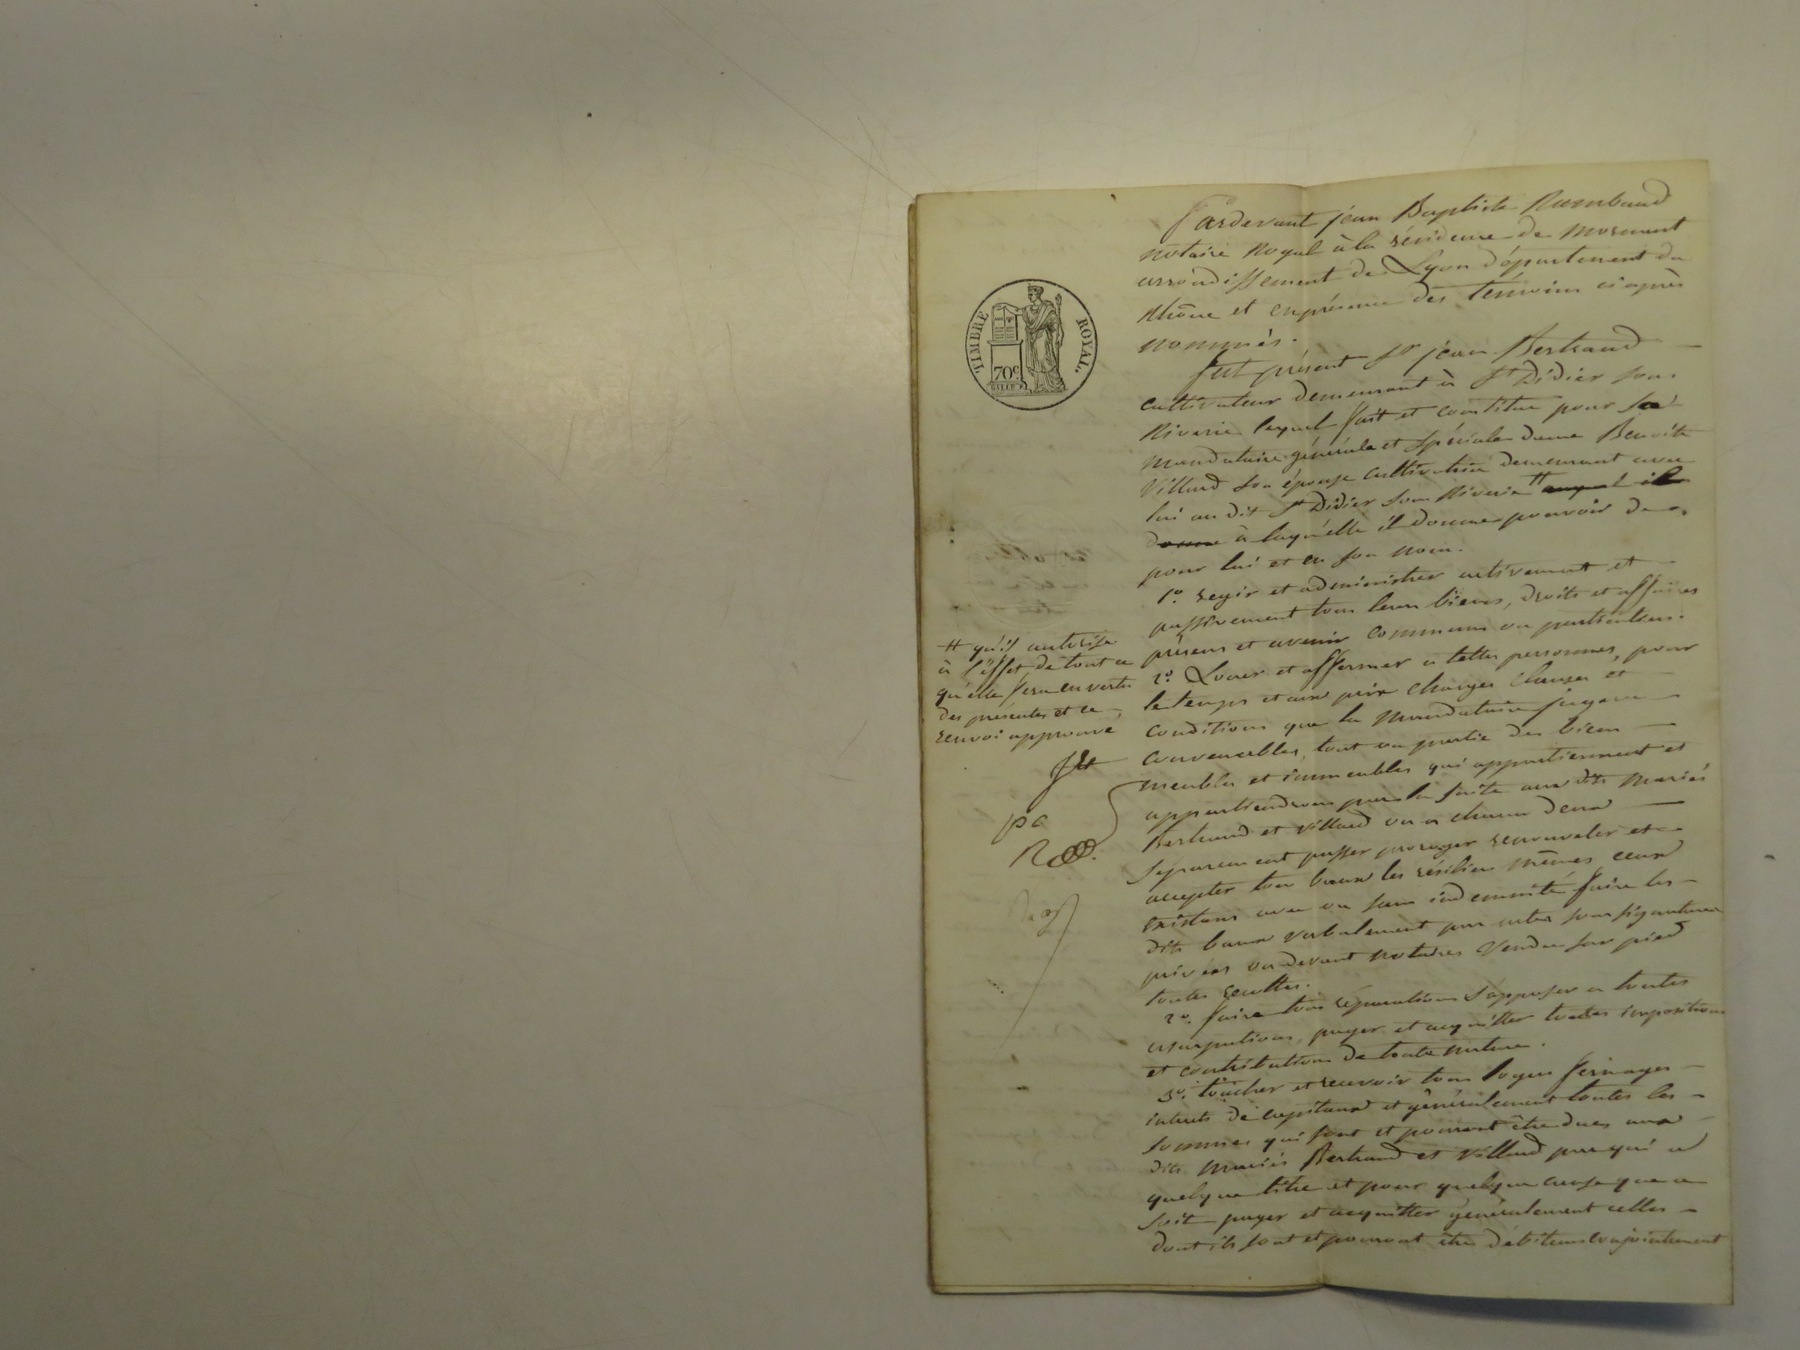 TIMBRE ROYAL.
70c
Pardevant jean Baptiste Rambaud
notaire Royal à la résidence de Mornant
arrondissement de Lyon département du
Rhône et en présence des témoins ci après
nommés.
fut présent Sr jean Bertrand
cultivateur demeurant à St Didier sous
Riverie lequel fait et constitue pour sa
mandataire générale et spéciale dame Benoite
Villard son épouse cultivatrice demeurant avec
lui au dit St Didier sous Riverie # auquel il
donne à laquelle il donne pouvoir de
pour lui et en son nom.
1o. regir et administrer activement et
passivement tous leurs biens, droits et affaires
présens et avenir communs ou particuliers.
2o. Louer et affermer a telles personnes, pour
le temps et aux prix charges clauses et
conditions que la mandataire jugera
convenables, tout ou partie des biens
meubles et immeubles qui appartiennent et
appartiendront par la suite aux dits mariés
Bertrand et Villard ou a chacun deux
séparement passer proroger renouveler et
accepter tous baux les résilier mêmes ceux
existans avec ou sans indemnité faire les
dits baux verbalement par actes sous signatures
privées ou devant notaires Vendre sur pied
toutes recoltes.
2o. faire tous réparations s'opposer a toutes
usurpations, payer et acquitter toutes impositions
et contributions de toute nature.
3o. toucher et recevoir tous loyers fermages
intérets de capitaux et généralement toutes les
sommes qui sont et pourront être dues aux
dits mariés Bertrand et Villard par qui a
quelque titre et pour quelque cause que ce
soit payer et acquitter généralement celles
dont ils sont et pourront être débiteurs conjointement
# qu'il autorise
à l'effet de tout ce
qu'elle fera en vertu
des présentes et ce
renvoi approuvé